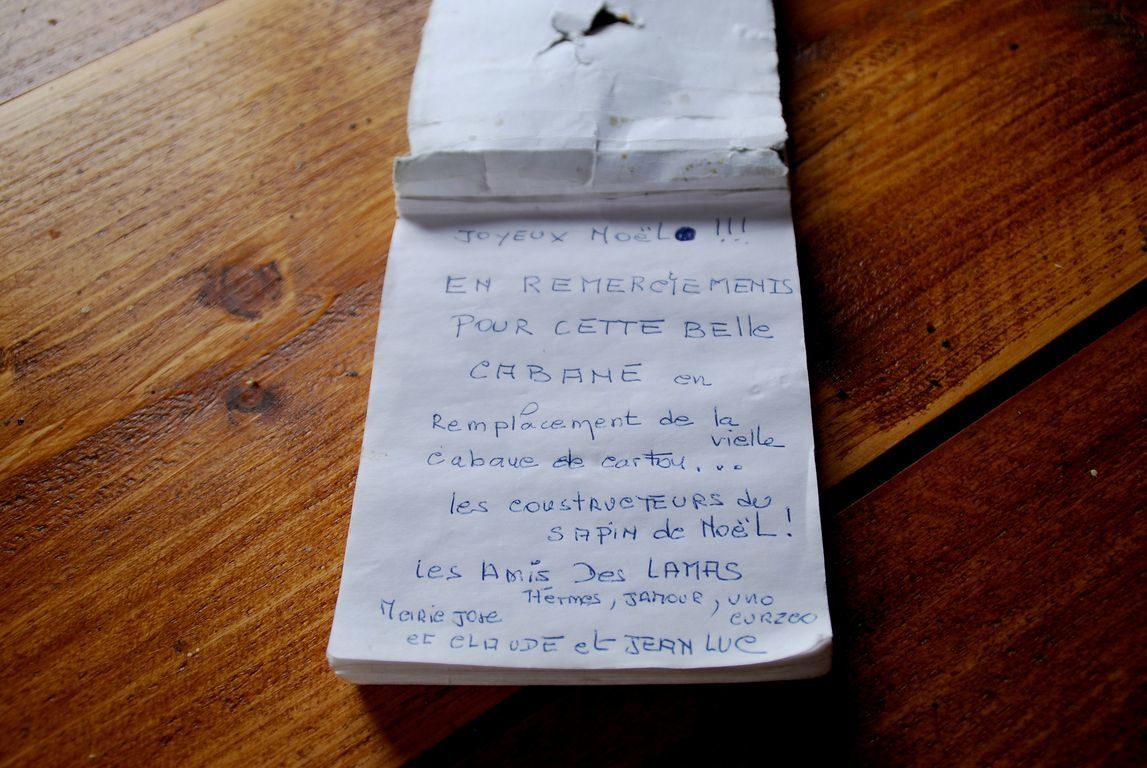 JOYEUX NOËL !!!
EN REMERCIEMENTS
POUR CETTE BELLE
CABANE en
Remplacement de la
vielle
cabane de carton...
les constructeurs du
SAPIN de NOËL!
Les Amis Des LAMAS
Hermes, JAMOUR, UNO
Marie Jose
CURZCO
et CLAUDE et JEAN LUC